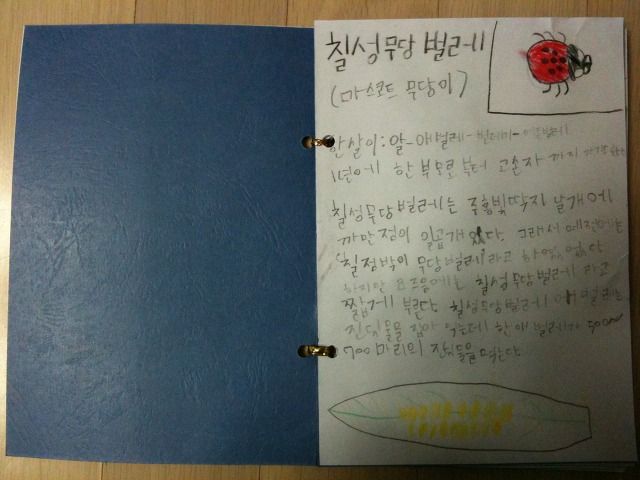 칠성무당벌레
(마스코트 무당이)
한살이: 알-애벌레-번데기-어른벌레
1년에 한 부모로부터 고손자까지
칠성무당벌레는 주홍빛딱지 날개에
까만점이 일곱개 있다. 그래서 예전에는
'칠점박이 무당벌레'라고 하였었다
하지만 요즘에는 칠성무당벌레라고
짧게 부른다. 칠성무당벌레 애벌레는
진딧물을 잡아 먹는데 한 애벌레가 500~
700마리의 진딧물을 먹는다.